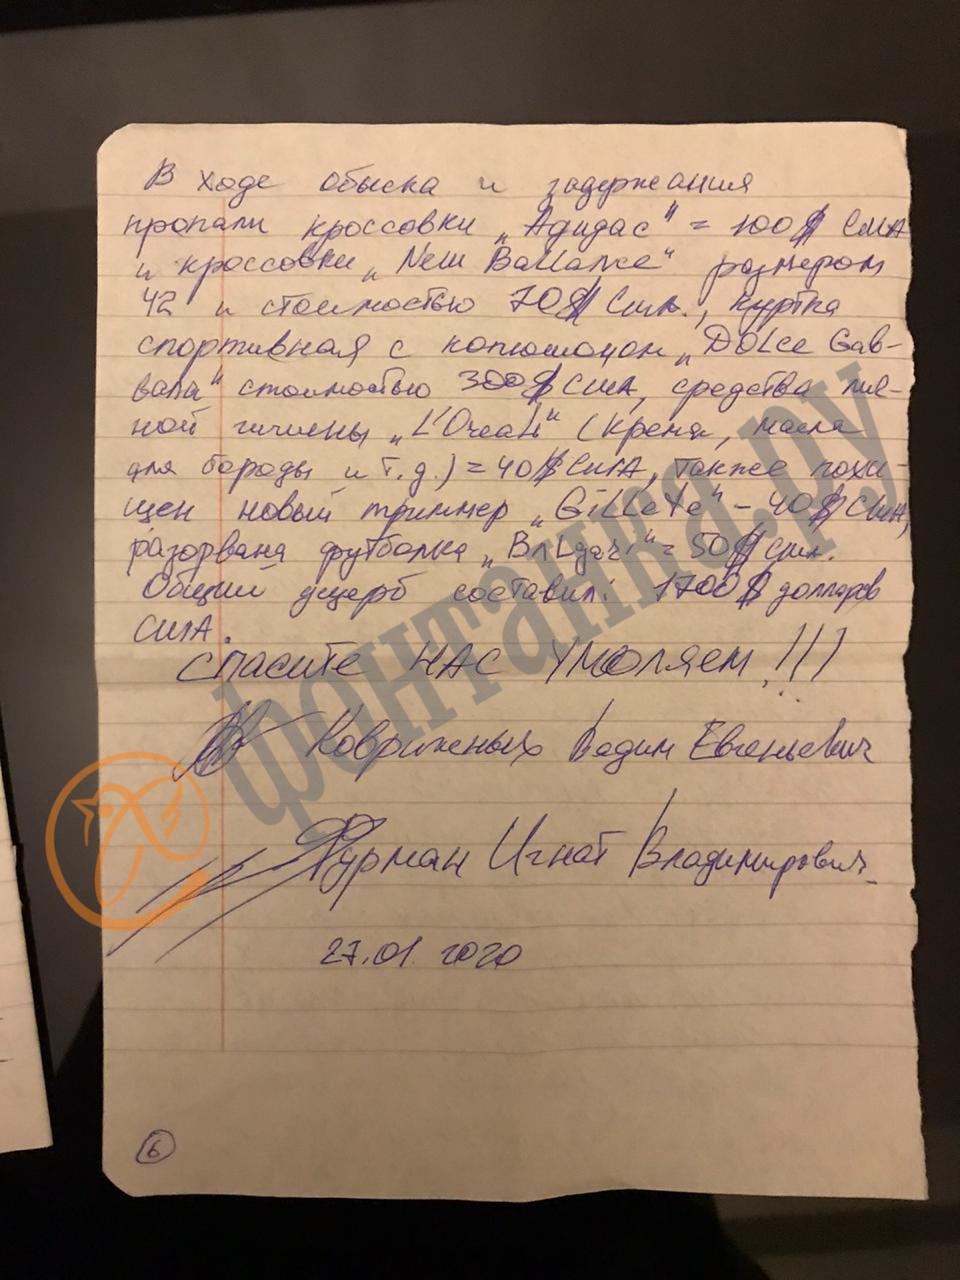 В ходе обыска и задержания
пропали кроссовки „Адидас" = 100$ США
и кроссовки „New Ballance" размером
42 и стоимостью 70$ США., куртка
спортивная с капюшоном „DOLce Gab-
bana" стоимостью 300$ США, средства лич-
ной гигиены „L'Oreal" (крема, масла
для бороды и т.д.) = 40$ США, также похи-
щен новый триммер „GiLLeTe" - 40$ США,
разорвана футболка = 50$ США.
Общий ущерб составил: 1700$ долларов
США.
СПАСИТЕ НАС УМОЛЯЕМ!!!
Коврижных Вадим Евгеньевич
Фурман Игнат Владимирович
27.01.2020
6
фонтанка.ру